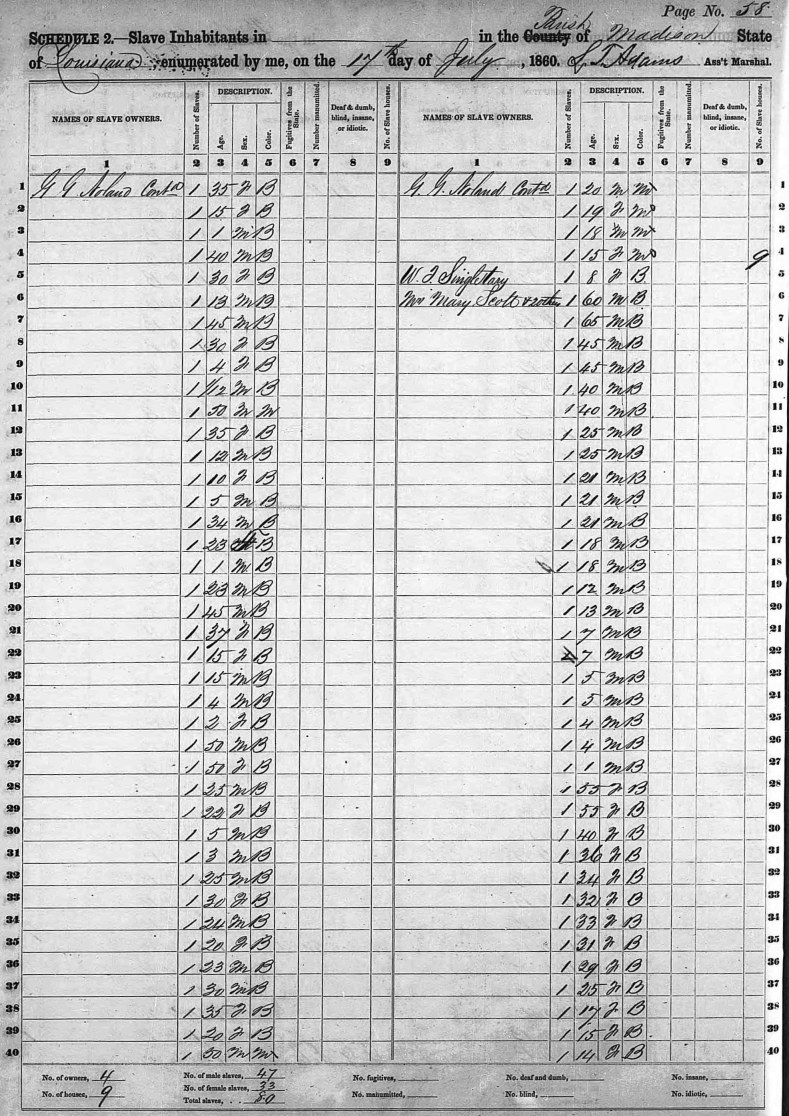 Page No. 58
SCHEDULE 2.—Slave Inhabitants in in the County Parish of Madison State
of Louisiana enumerated by me, on the 17th day of July, 1860. L. T. Adams Ass't Marshal.
NAMES OF SLAVE OWNERS. Number of Slaves. DESCRIPTION. Age. Sex. Color. Fugitives from the State. Number manumitted. Deaf & dumb, blind, insane, or idiotic. No. of Slave houses. NAMES OF SLAVE OWNERS. Number of Slaves. DESCRIPTION. Age. Sex. Color. Fugitives from the State. Number manumitted. Deaf & dumb, blind, insane, or idiotic. No. of Slave houses.
1 2 3 4 5 6 7 8 9 1 2 3 4 5 6 7 8 9
1 G G Noland Contd 1 35 F B G. G. Noland Contd 1 20 M M 1
2 1 15 F B 1 19 F M 2
3 1 1 M B 1 18 M M 3
4 1 40 M B 1 15 F M 9 4
5 1 30 F B W. F. Singletary 1 8 F B 5
6 1 13 M B Mrs Mary Scott & 1 60 M B 6
7 1 45 M B 1 65 M B 7
8 1 30 F B 1 45 M B 8
9 1 4 F B 1 45 M B 9
10 1 1/12 M B 1 40 M B 10
11 1 50 M M 1 40 M B 11
12 1 35 F B 1 25 M B 12
13 1 12 M B 1 25 M B 13
14 1 10 F B 1 21 M B 14
15 1 5 M B 1 21 M B 15
16 1 34 M B 1 21 M B 16
17 1 23 B 1 18 M B 17
18 1 1 M B 1 18 M B 18
19 1 23 M B 1 12 M B 19
20 1 45 M B 1 13 M B 20
21 1 37 F B 1 7 M B 21
22 1 15 F B 1 7 M B 22
23 1 15 M B 1 5 M B 23
24 1 4 M B 1 5 M B 24
25 1 2 F B 1 4 M B 25
26 1 50 M B 1 4 M B 26
27 1 50 F B 1 1 M B 27
28 1 25 M B 1 55 F B 28
29 1 22 F B 1 55 F B 29
30 1 5 M B 1 40 F B 30
31 1 3 M B 1 36 F B 31
32 1 25 M B 1 34 F B 32
33 1 30 F B 1 32 F B 33
34 1 24 M B 1 33 F B 34
35 1 20 F B 1 31 F B 35
36 1 23 M B 1 29 F B 36
37 1 30 M B 1 25 F B 37
38 1 35 F B 1 17 F B 38
39 1 20 F B 1 15 F B 39
40 1 30 M M 1 14 F B 40
No. of owners, 4 No. of male slaves, 47 No. fugitives, No. of deaf and dumb, No. of insane,
No. of houses, 9 No. of female slaves, 33 No. manumitted, No. of blind, No. of idiotic,
Total slaves, 80